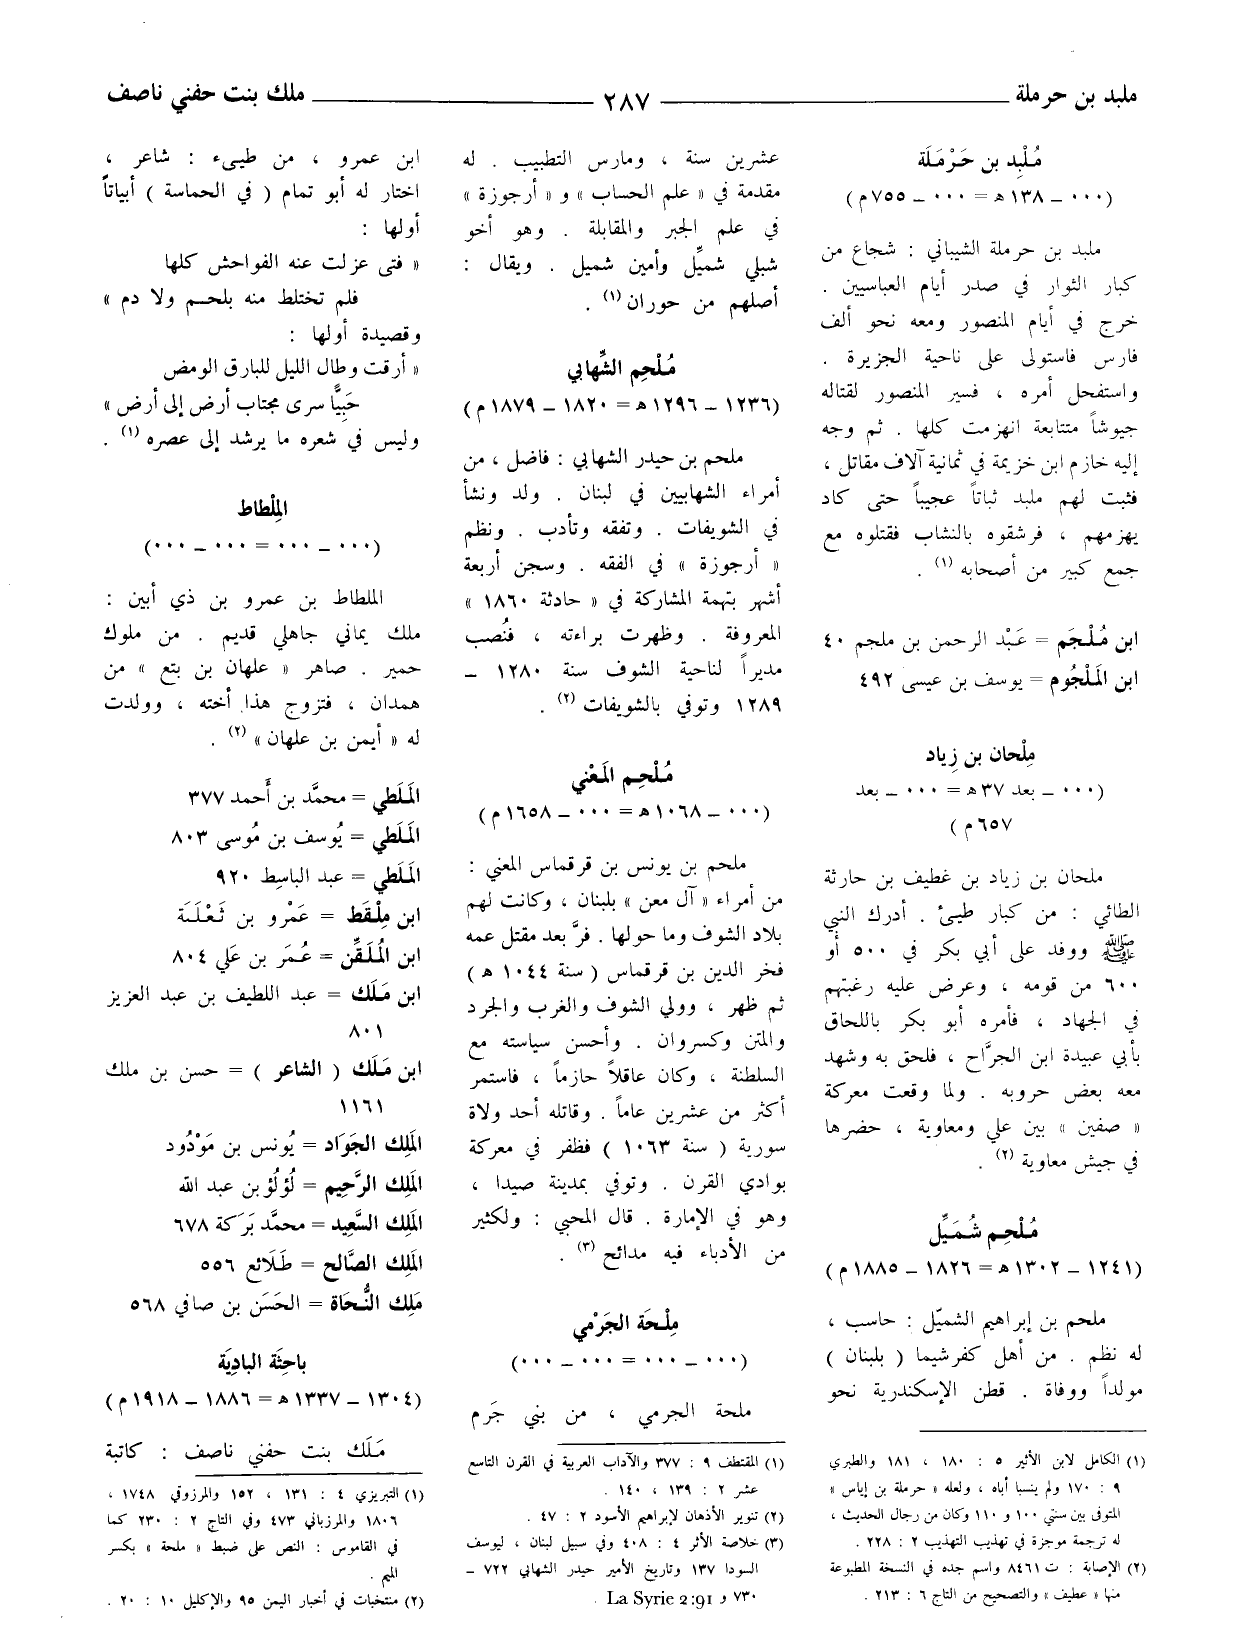 ملبد بن حرملة ــــ ٢٨٧ ــــ ملك بنت حفني ناصف
مُلْبِد بن حَرْمَلَة
(٠٠٠ ــ ١٣٨ هـ = ٠٠٠ ــ ٧٥٥ م)
ملبد بن حرملة الشيباني : شجاع من
كبار الثوار في صدر أيام العباسيين .
خرج في أيام المنصور ومعه نحو ألف
فارس فاستولى على ناحية الجزيرة .
واستفحل أمره ، فسير المنصور لقتاله
جيوشاً متتابعة انهزمت كلها . ثم وجه
إليه خازم ابن خزيمة في ثمانية آلاف مقاتل ،
فثبت لهم ملبد ثباتاً عجيباً حتى كاد
يهزمهم ، فرشقوه بالنشاب فقتلوه مع
جمع كبير من أصحابه (١) .
ابن مُلْجَم = عَبْد الرحمن بن ملجم ٤٠
ابن المَلْجُوم = يوسف بن عيسى ٤٩٢
مِلْحان بن زِياد
(٠٠٠ ــ بعد ٣٧ هـ = ٠٠٠ ــ بعد
٦٥٧ م)
ملحان بن زياد بن غطيف بن حارثة
الطائي : من كبار طيئ . أدرك النبي
ﷺ ووفد على أبي بكر في ٥٠٠ أو
٦٠٠ من قومه ، وعرض عليه رغبتهم
في الجهاد ، فأمره أبو بكر باللحاق
بأبي عبيدة ابن الجرَّاح ، فلحق به وشهد
معه بعض حروبه . ولما وقعت معركة
« صفين » بين علي ومعاوية ، حضرها
في جيش معاوية (٢) .
مُلْحِم شُمَيِّل
(١٢٤١ ــ ١٣٠٢ هـ = ١٨٢٦ ــ ١٨٨٥ م)
ملحم بن إبراهيم الشميّل : حاسب ،
له نظم . من أهل كفرشيما ( بلبنان )
مولداً ووفاة . قطن الإسكندرية نحو
(١) الكامل لابن الأثير ٥ : ١٨٠ ، ١٨١ والطبري
٩ : ١٧٠ ولم ينسبا أباه ، ولعله « حرملة بن إياس »
المتوفى بين سنتي ١٠٠ و ١١٠ وكان من رجال الحديث ،
له ترجمة موجزة في تهذيب التهذيب ٢ : ٢٢٨ .
(٢) الإصابة : ت ٨٤٦١ واسم جده في النسخة المطبوعة
منها « عطيف » والتصحيح من التاج ٦ : ٢١٣ .
عشرين سنة ، ومارس التطبيب . له
مقدمة في « علم الحساب » و « أرجوزة »
في علم الجبر والمقابلة . وهو أخو
شبلي شميِّل وأمين شميل . ويقال :
أصلهم من حوران (١) .
مُلْحِم الشِّهابي
(١٢٣٦ ــ ١٢٩٦ هـ = ١٨٢٠ ــ ١٨٧٩ م)
ملحم بن حيدر الشهابي : فاضل ، من
أمراء الشهابيين في لبنان . ولد ونشأ
في الشويفات . وتفقه وتأدب . ونظم
« أرجوزة » في الفقه . وسجن أربعة
أشهر بتهمة المشاركة في « حادثة ١٨٦٠ »
المعروفة . وظهرت براءته ، فنُصب
مديراً لناحية الشوف سنة ١٢٨٠ ــ
١٢٨٩ وتوفي بالشويفات (٢) .
مُلْحِم المَعْني
(٠٠٠ ــ ١٠٦٨ هـ = ٠٠٠ ــ ١٦٥٨ م)
ملحم بن يونس بن قرقماس المعني :
من أمراء « آل معن » بلبنان ، وكانت لهم
بلاد الشوف وما حولها . فرَّ بعد مقتل عمه
فخر الدين بن قرقماس ( سنة ١٠٤٤ هـ )
ثم ظهر ، وولي الشوف والغرب والجرد
والمتن وكسروان . وأحسن سياسته مع
السلطنة ، وكان عاقلاً حازماً ، فاستمر
أكثر من عشرين عاماً . وقاتله أحد ولاة
سورية ( سنة ١٠٦٣ ) فظفر في معركة
بوادي القرن . وتوفي بمدينة صيدا ،
وهو في الإمارة . قال المحبي : ولكثير
من الأدباء فيه مدائح (٣) .
مِلْحَة الجَرْمي
(٠٠٠ ــ ٠٠٠ = ٠٠٠ ــ ٠٠٠)
ملحة الجرمي ، من بني جَرم
(١) المقتطف ٩ : ٣٧٧ والآداب العربية في القرن التاسع
عشر ٢ : ١٣٩ ، ١٤٠ .
(٢) تنوير الأذهان لإبراهيم الأسود ٢ : ٤٧ .
(٣) خلاصة الأثر ٤ : ٤٠٨ وفي سبيل لبنان ، ليوسف
السودا ١٣٧ وتاريخ الأمير حيدر الشهابي ٧٢٢ ــ
٧٣٠ و La Syrie 2:91 .
ابن عمرو ، من طيىء : شاعر ،
اختار له أبو تمام ( في الحماسة ) أبياتاً
أولها :
« فتى عزلت عنه الفواحش كلها
فلم تختلط منه بلحم ولا دم »
وقصيدة أولها :
« أرقت وطال الليل للبارق الومض
حَبِيًّا سرى مجتاب أرض إلى أرض »
وليس في شعره ما يرشد إلى عصره (١) .
المِلْطاط
(٠٠٠ ــ ٠٠٠ = ٠٠٠ ــ ٠٠٠)
الملطاط بن عمرو بن ذي أبين :
ملك يماني جاهلي قديم . من ملوك
حمير . صاهر « علهان بن بتع » من
همدان ، فتزوج هذا أخته ، وولدت
له « أيمن بن علهان » (٢) .
المَلَطي = محمَّد بن أَحمد ٣٧٧
المَلَطي = يُوسف بن مُوسى ٨٠٣
المَلَطي = عبد الباسِط ٩٢٠
ابن مِلْقَط = عَمْرو بن ثَعْلَبَة
ابن المُلَقِّن = عُمَر بن عَلي ٨٠٤
ابن مَلَك = عبد اللطيف بن عبد العزيز
٨٠١
ابن مَلَك ( الشاعر ) = حسن بن ملك
١١٦١
المَلِك الجَوَاد = يُونس بن مَوْدُود
المَلِك الرَّحِيم = لُؤلُؤ بن عبد الله
المَلِك السَّعِيد = محمَّد بَرَكة ٦٧٨
المَلِك الصَّالح = طَلَائع ٥٥٦
مَلِك النُّحَاة = الحَسَن بن صافي ٥٦٨
باحِثَة البادِيَة
(١٣٠٤ ــ ١٣٣٧ هـ = ١٨٨٦ ــ ١٩١٨ م)
مَلَك بنت حفني ناصف : كاتبة
(١) التبريزي ٤ : ١٣١ ، ١٥٢ والمرزوقي ١٧٤٨ ،
١٨٠٦ والمرزباني ٤٧٣ وفي التاج ٢ : ٢٣٠ كما
في القاموس : النص على ضبط « ملحة » بكسر
الميم .
(٢) منتخبات في أخبار اليمن ٩٥ والإكليل ١٠ : ٢٠ .